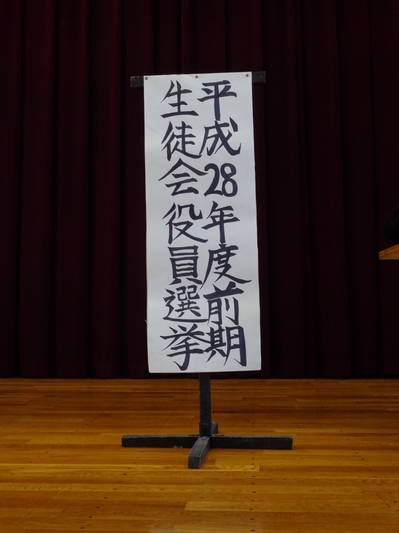 平成28年度前期
生徒会役員選挙